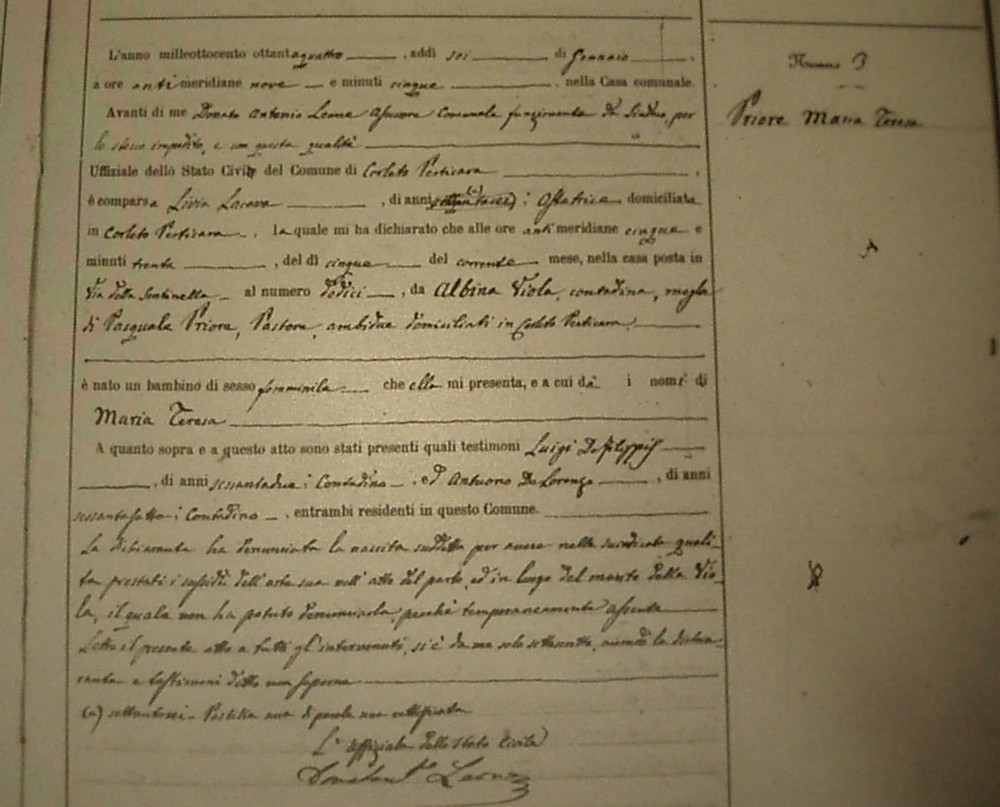 L'anno milleottocento ottantaquattro, addì sei di Gennaio,
a ore antimeridiane nove e minuti cinque, nella Casa comunale.
Avanti di me Donato Antonio Leone Assessore Comunale funzionante da Sindaco, per
lo stesso impedito, e con questa qualità
Uffiziale dello Stato Civile del Comune di Corleto Perticara,
è comparsa Livia Lacava, di anni (a); Ostetrica domiciliata
in Corleto Perticara, la quale mi ha dichiarato che alle ore antimeridiane cinque e
minuti trenta, del dì cinque del corrente mese, nella casa posta in
Via della Sentinella al numero dodici, da Albina Viola, contadina, moglie
di Pasquale Priore, Pastore, ambidue domiciliati in Corleto Perticara
è nato un bambino di sesso femminile che ella mi presenta, e a cui dà i nomi di
Maria Teresa
A quanto sopra e a questo atto sono stati presenti quali testimoni Luigi De Filippis
, di anni sessantadue; Contadino, ed Antuono De Lorenzo, di anni
sessantasette; Contadino, entrambi residenti in questo Comune.
La dichiarante ha denunciata la nascita suddetta per avere nella suindicata quali-
tà prestati i sussidii dell'arte sua nell'atto del parto, ed in luogo del marito della Vio-
la, il quale non ha potuto denunciarla, perchè temporaneamente assente
Letto il presente atto a tutti gl'intervenuti, si è da me solo sottoscritto, avendo la dichia-
rante e testimoni detto non sapere
(a) settantasei. Postilla una di parole una rettificata
L'Uffiziale dello Stato Civile
Donatant. Leone
Numero 3
Priore Maria Teresa